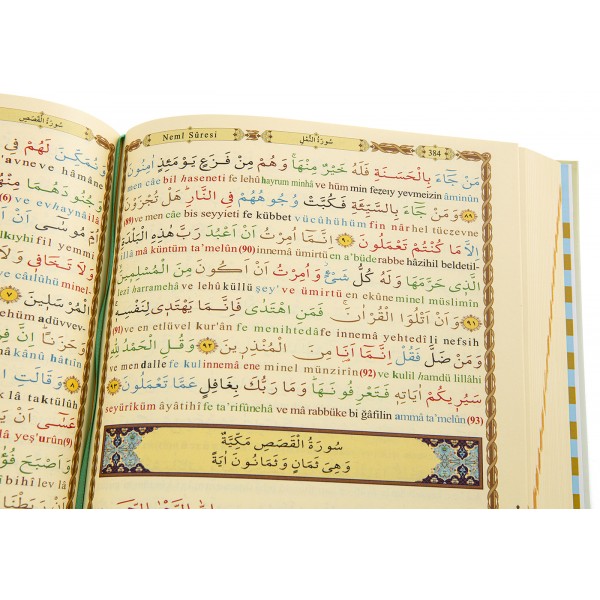 Neml Sûresi
سُورَةُ النَّمْلِ
384
مَنْ جَٓاءَ بِالْحَسَنَةِ فَلَهُ خَيْرٌ مِنْهَاۚ وَهُمْ مِنْ فَزَعٍ يَوْمَئِذٍ اٰمِنُونَ
men câe bil haseneti fe lehû hayrum minhâ ve hüm min fezeıy yevmeizin âminûn
﴿٨٩﴾ وَمَنْ جَٓاءَ بِالسَّيِّئَةِ فَكُبَّتْ وُجُوهُهُمْ فِي النَّارِۜ هَلْ تُجْزَوْنَ
(89) ve men câe bis seyyieti fe kübbet vücûhühüm fin nâr hel tüczevne
اِلَّا مَا كُنْتُمْ تَعْمَلُونَ ﴿٩٠﴾ اِنَّمَٓا اُمِرْتُ اَنْ اَعْبُدَ رَبَّ هٰذِهِ الْبَلْدَةِ
illâ mâ küntüm ta'melûn (90) innemâ ümirtü en a'büde rabbe hâzihil beldetil-
الَّذ۪ي حَرَّمَهَا وَلَهُ كُلُّ شَيْءٍۘ وَاُمِرْتُ اَنْ اَكُونَ مِنَ الْمُسْلِم۪ينَۙ
lezî harramehâ ve lehû küllü şey' ve ümirtü en ekûne minel müslimîn
﴿٩١﴾ وَاَنْ اَتْلُوَا الْقُرْاٰنَۚ فَمَنِ اهْتَدٰى فَاِنَّمَا يَهْتَد۪ي لِنَفْسِه۪ۚ
(91) ve en etlüvel kur'ân fe menihtedâ fe innemâ yehtedî li nefsih
وَمَنْ ضَلَّ فَقُلْ اِنَّمَٓا اَنَا۬ مِنَ الْمُنْذِر۪ينَ ﴿٩٢﴾ وَقُلِ الْحَمْدُ لِلّٰهِ
ve men dalle fe kul innemâ ene minel münzirîn (92) ve kulil hamdü lillâhi
سَيُر۪يكُمْ اٰيَاتِه۪ فَتَعْرِفُونَهَاۜ وَمَا رَبُّكَ بِغَافِلٍ عَمَّا تَعْمَلُونَ ﴿٩٣﴾
seyürîküm âyâtihî fe ta'rifûnehâ ve mâ rabbüke bi ğâfilin ammâ ta'melûn (93)
سُورَةُ الْقَصَصِ مَكِّيَّةٌ
وَهِيَ ثَمَانٍ وَثَمَانُونَ اٰيَةً
سُورَةُ الْقَصَصِ
وَنُمَكِّنَ لَهُمْ فِي
ve hâmâne
وَجُنُودَهُمَا مِنْهُمْ
(6) ve evhaynâ
اُمِّ مُوسٰٓى اَنْ
fil yemmi
وَلَا تَخَاف۪ي وَلَا
ve câilûhü minel-
الْمُرْسَل۪ينَ ﴿٧﴾
adüvvev-
فِرْعَوْنَ
kânû hâtıîn
﴿٨﴾ وَقَالَتِ
lâ taktülûh
عَسٰٓى اَنْ
lâ yeş'urûn (9)
وَاَصْبَحَ فُؤٰادُ
bihî lev lâ
اَنْ رَبَطْنَا